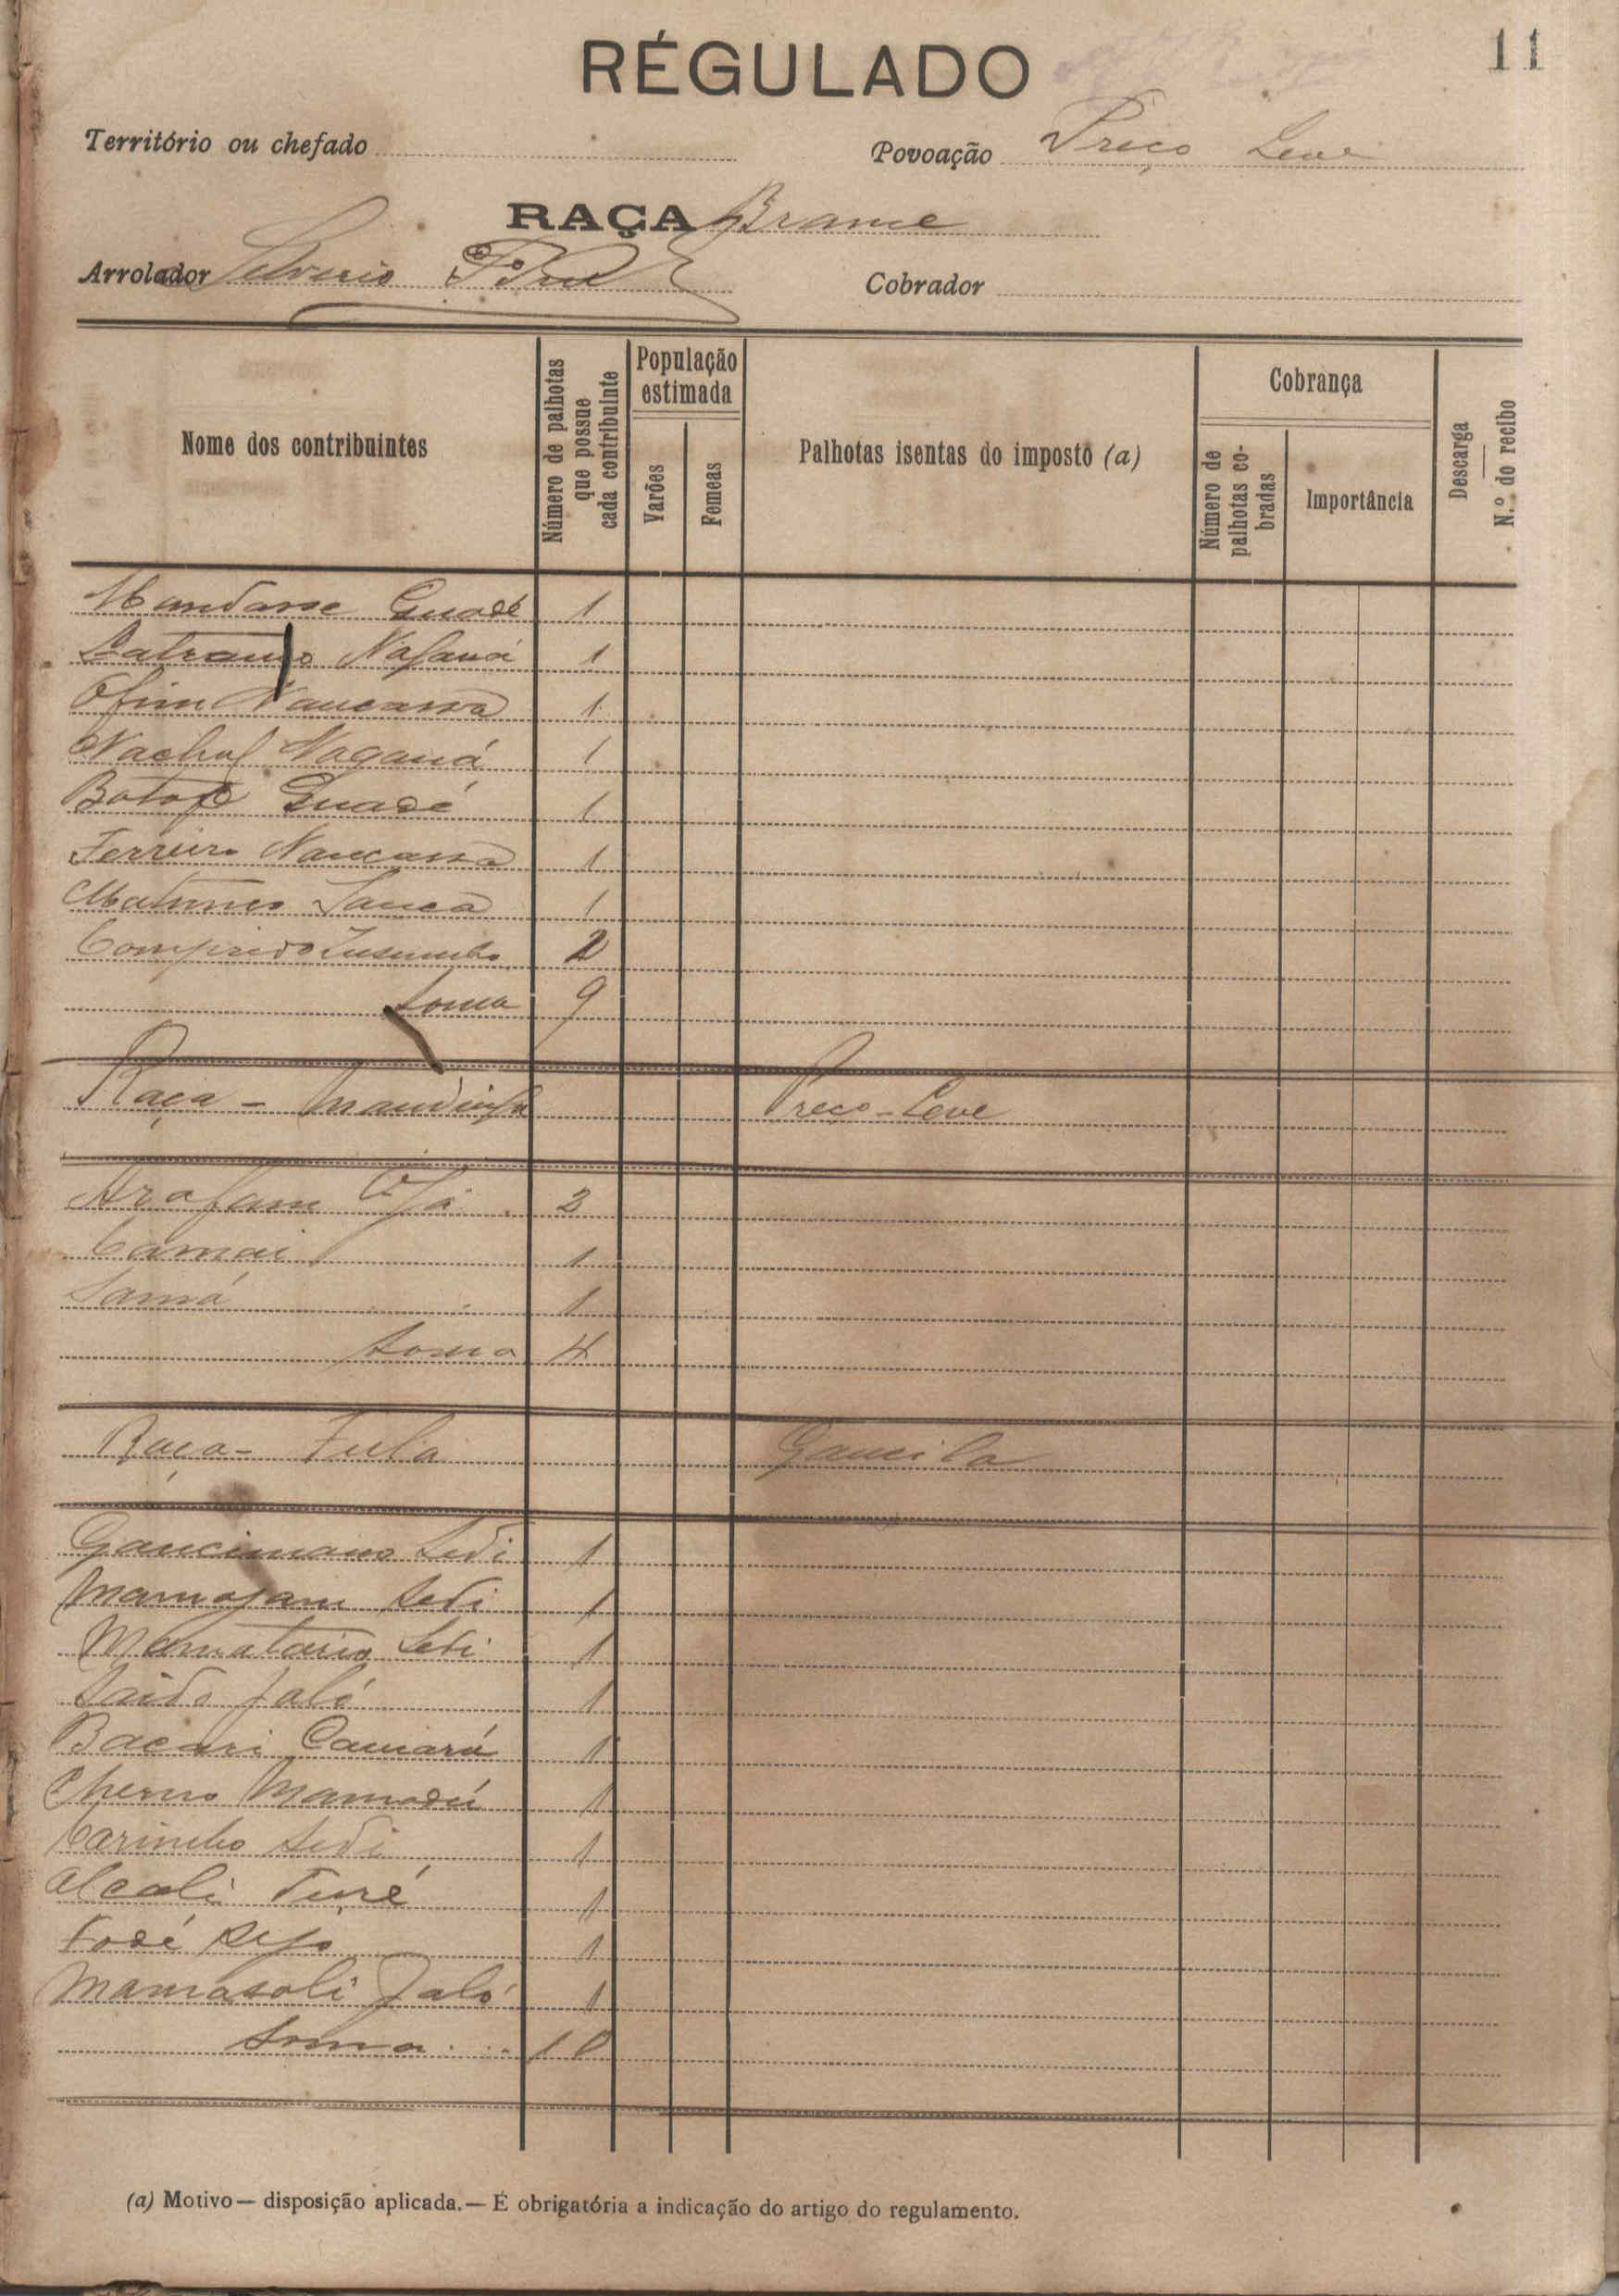 11
RÉGULADO
Território ou chefado
Povoação Preço Leve
RAÇA Brame
Arrolador Silverio
Cobrador
Nome dos contribuintes
Número de palhotas que possue cada contribuinte
População estimada
Varões
Femeas
Palhotas isentas do imposto (a)
Cobrança
Número de palhotas cobradas
Importância
Descarga
N.º do recibo
Guadé 1
Nafaná 1
Ofim Naucassa 1
Naganá 1
Guadé 1
Ferreiro Naucassa 1
Sanca 1
Comprido 2
Soma 9
Raça - Mandinga Preço-Leve
Arafam 2
Camai 1
Samá 1
Soma 4
Raça - Fula Gamcila
Sedi 1
Sedi 1
Sedi 1
Saido Jaló 1
Bacari Camará 1
Cherno Mamadú 1
Sedi 1
Alcali Turé 1
Fodé 1
Mamasoli Jaló 1
Soma 10
(a) Motivo— disposição aplicada.— É obrigatória a indicação do artigo do regulamento.